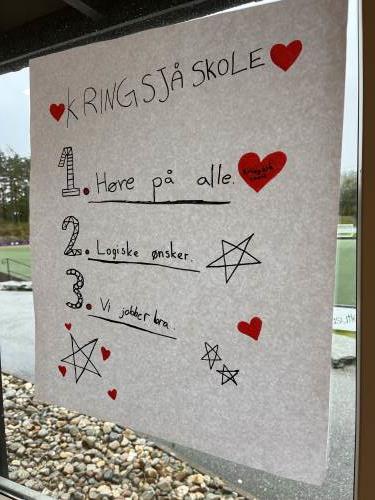 KRINGSJÅ SKOLE
1. Høre på alle.
2. Logiske ønsker.
3. Vi jobber bra.